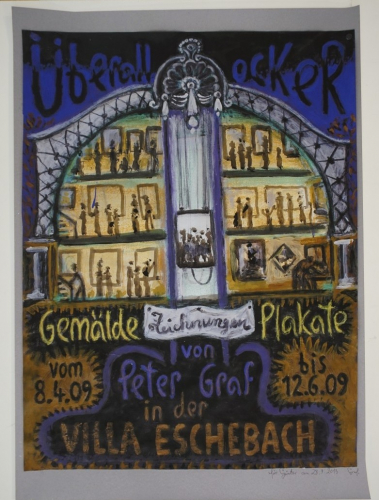 Überall ockeR
Gemälde Zeichnungen Plakate
von
vom 8.4.09
bis 12.6.09
Peter Graf
in der
VILLA ESCHEBACH